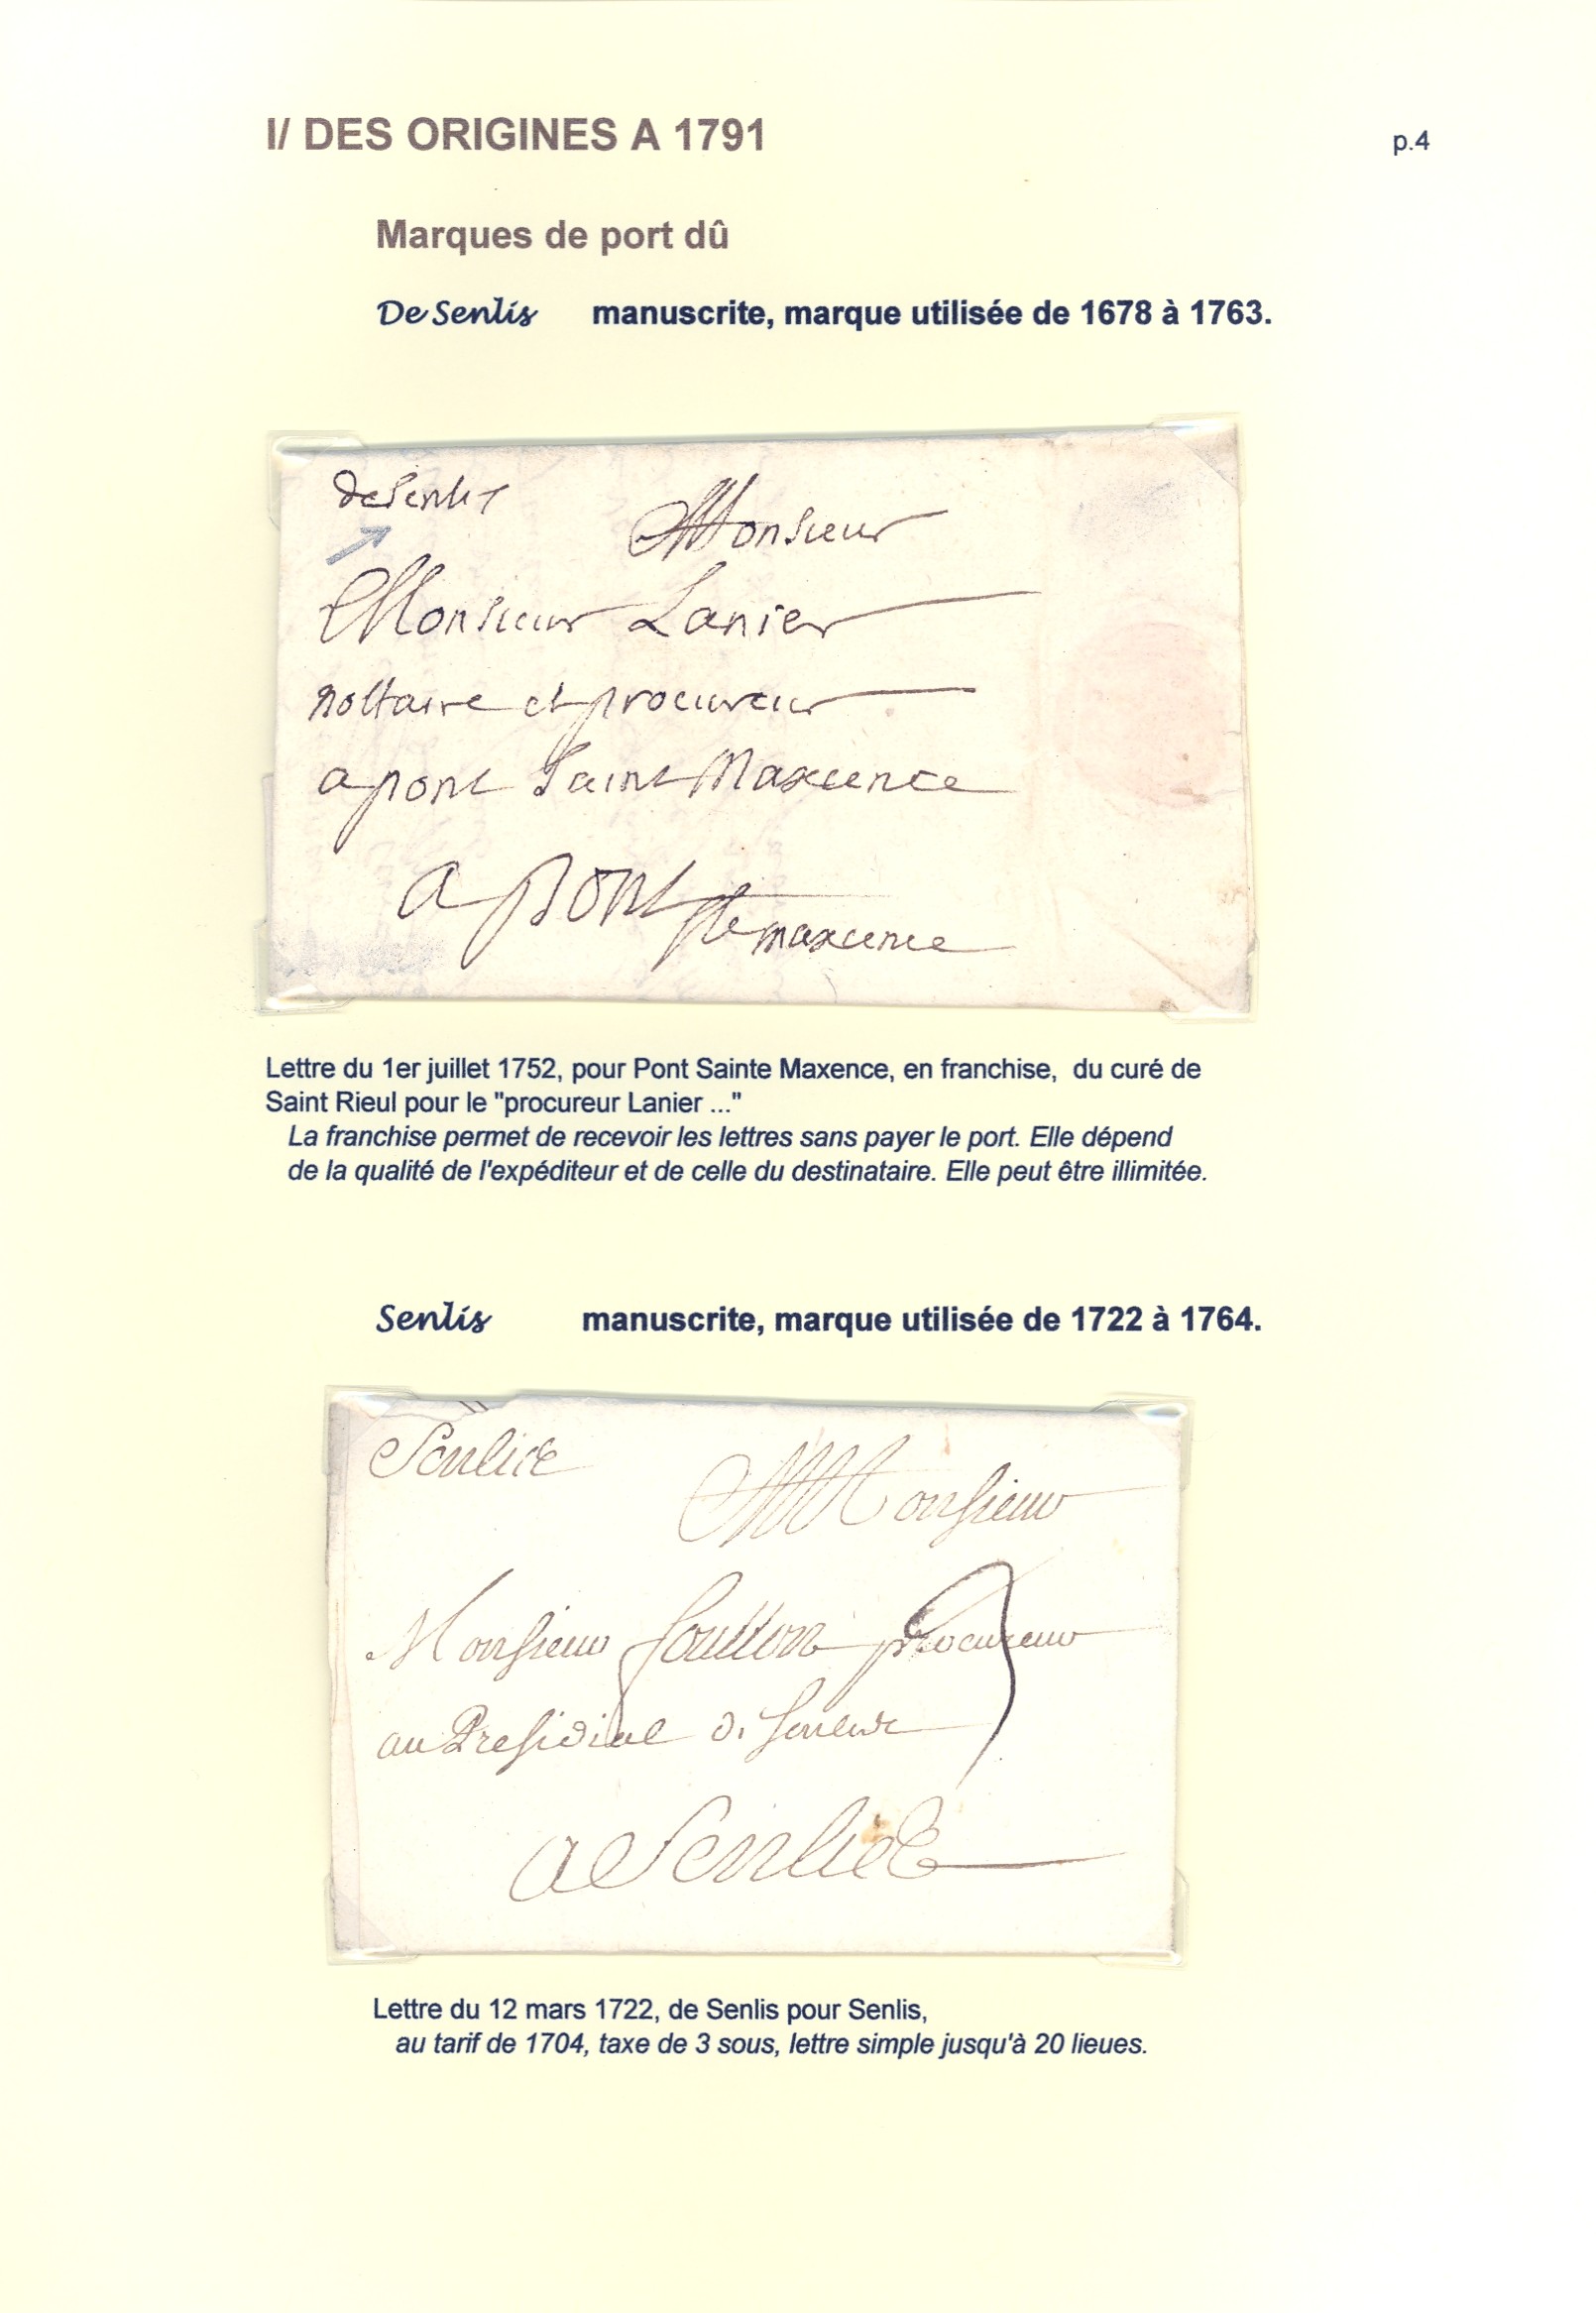 I/ DES ORIGINES A 1791
p.4
Marques de port dû
De Senlis manuscrite, marque utilisée de 1678 à 1763.
de Senlis
Monsieur
Monsieur Lanier
nottaire et procureur
a pont Saint Maxence
a pont
Ste maxence
Lettre du 1er juillet 1752, pour Pont Sainte Maxence, en franchise, du curé de
Saint Rieul pour le "procureur Lanier ..."
La franchise permet de recevoir les lettres sans payer le port. Elle dépend
de la qualité de l'expéditeur et de celle du destinataire. Elle peut être illimitée.
Senlis manuscrite, marque utilisée de 1722 à 1764.
Senlice
Monsieur
Monsieur procureur
au Presidial
3
a Senlice
Lettre du 12 mars 1722, de Senlis pour Senlis,
au tarif de 1704, taxe de 3 sous, lettre simple jusqu'à 20 lieues.